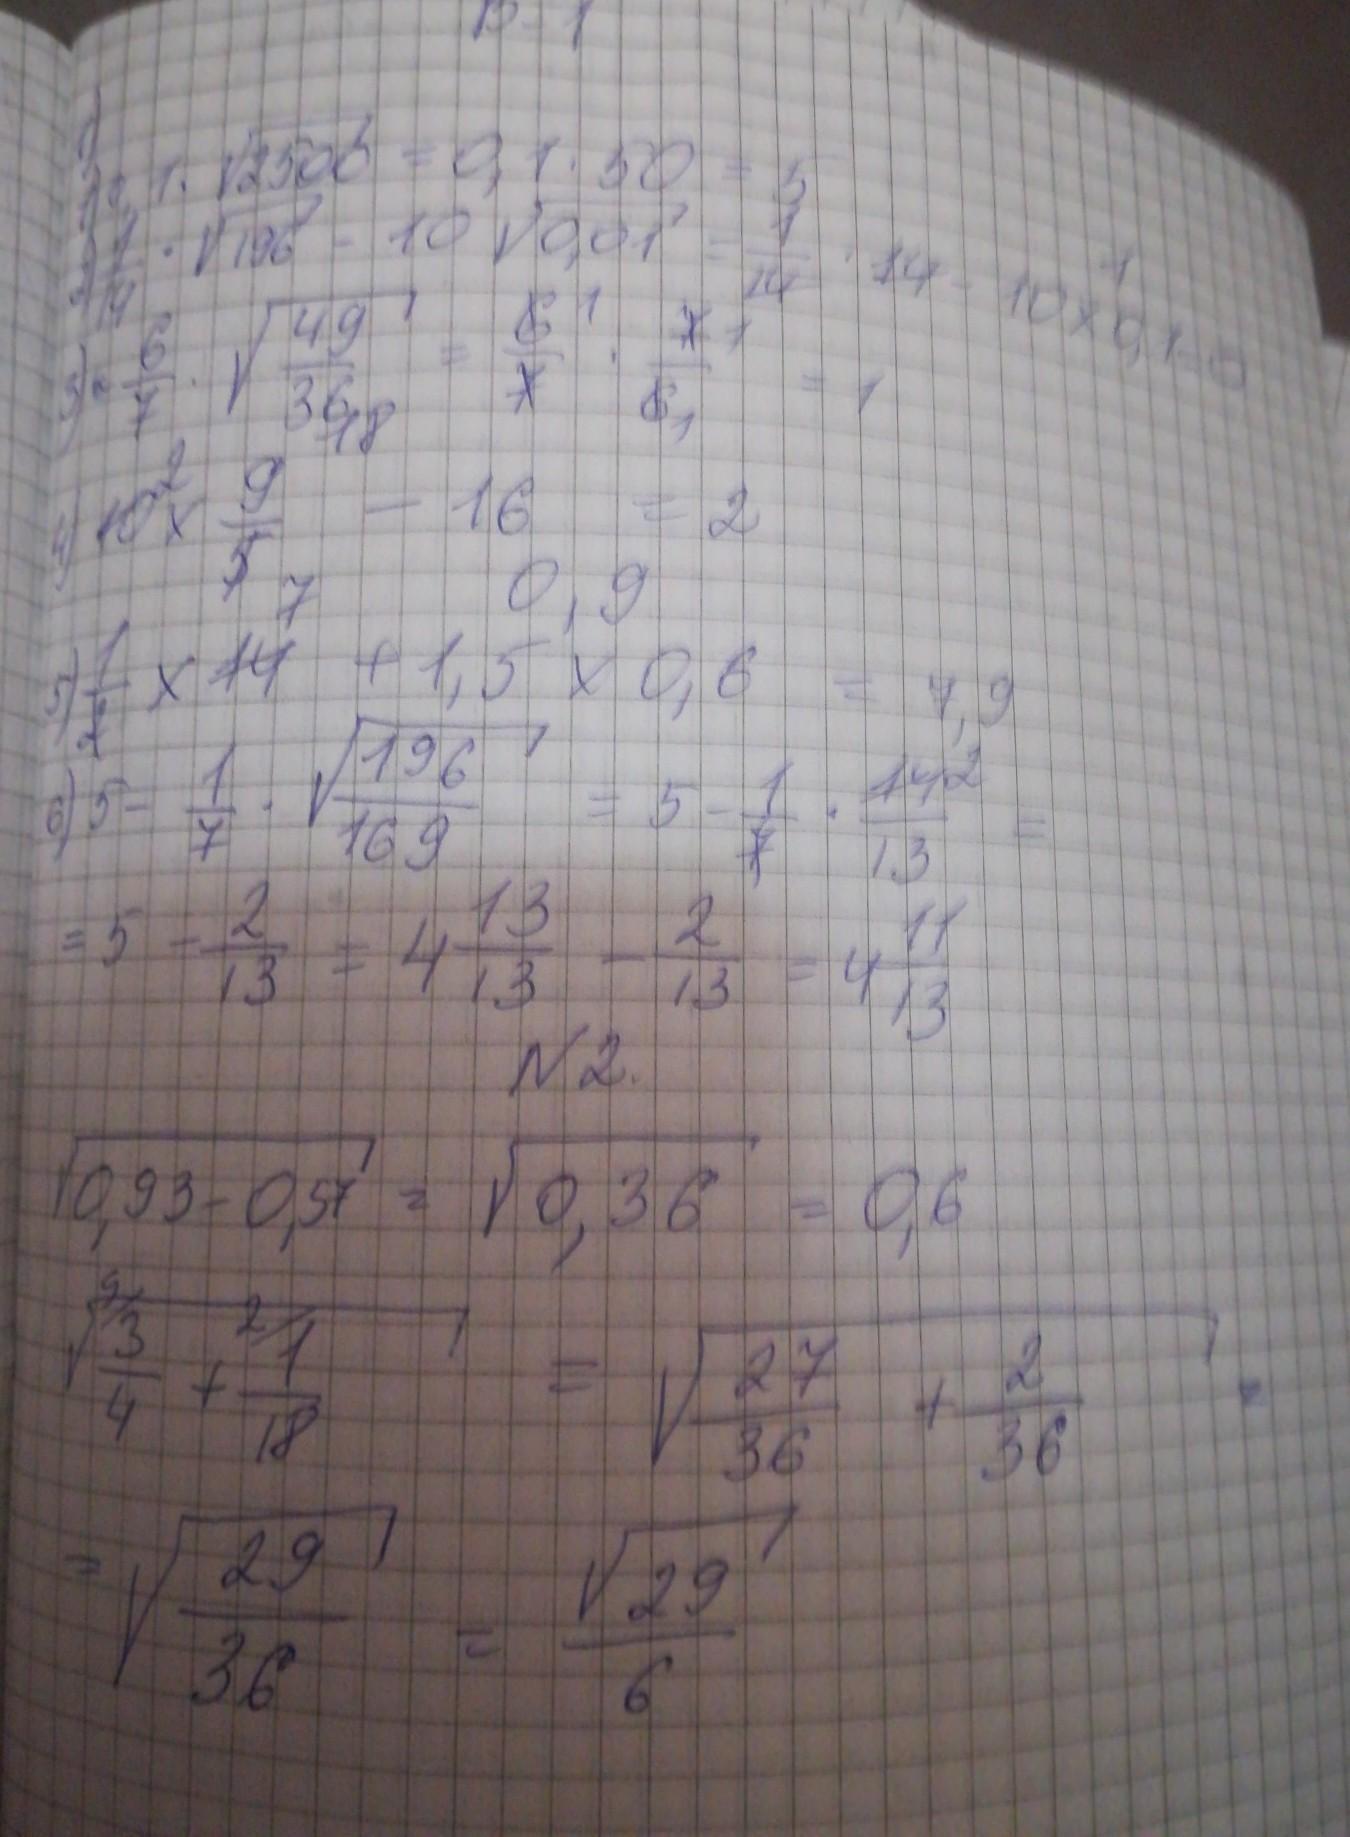 В-1
1) 0,1 · √2500 = 0,1 · 50 = 5
2) 1/14 · √196 - 10 √0,01 = 1/14 · 14 - 10 × 0,1 = 0
3) 6/7 · √(49/36) = 6/7 · 7/6 = 1
4) 10 × 9/5 - 16 = 2
5) 1/2 × 14 + 1,5 × 0,6 = 7,9
6) 5 - 1/7 · √(196/169) = 5 - 1/7 · 14/13 =
= 5 - 2/13 = 4 13/13 - 2/13 = 4 11/13
N2.
√(0,93 - 0,57) = √0,36 = 0,6
√(3/4 + 1/18) = √(27/36 + 2/36) =
= √(29/36) = √29/6